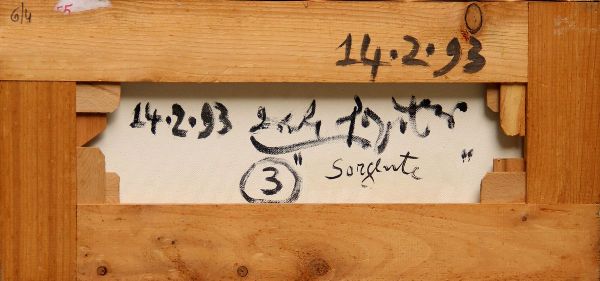 6/4
55
14.2.93
14.2.93
3 " Sorgente "